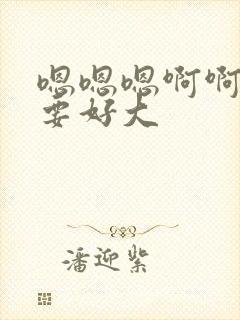 嗯嗯嗯啊啊
要好大
潘迎紫